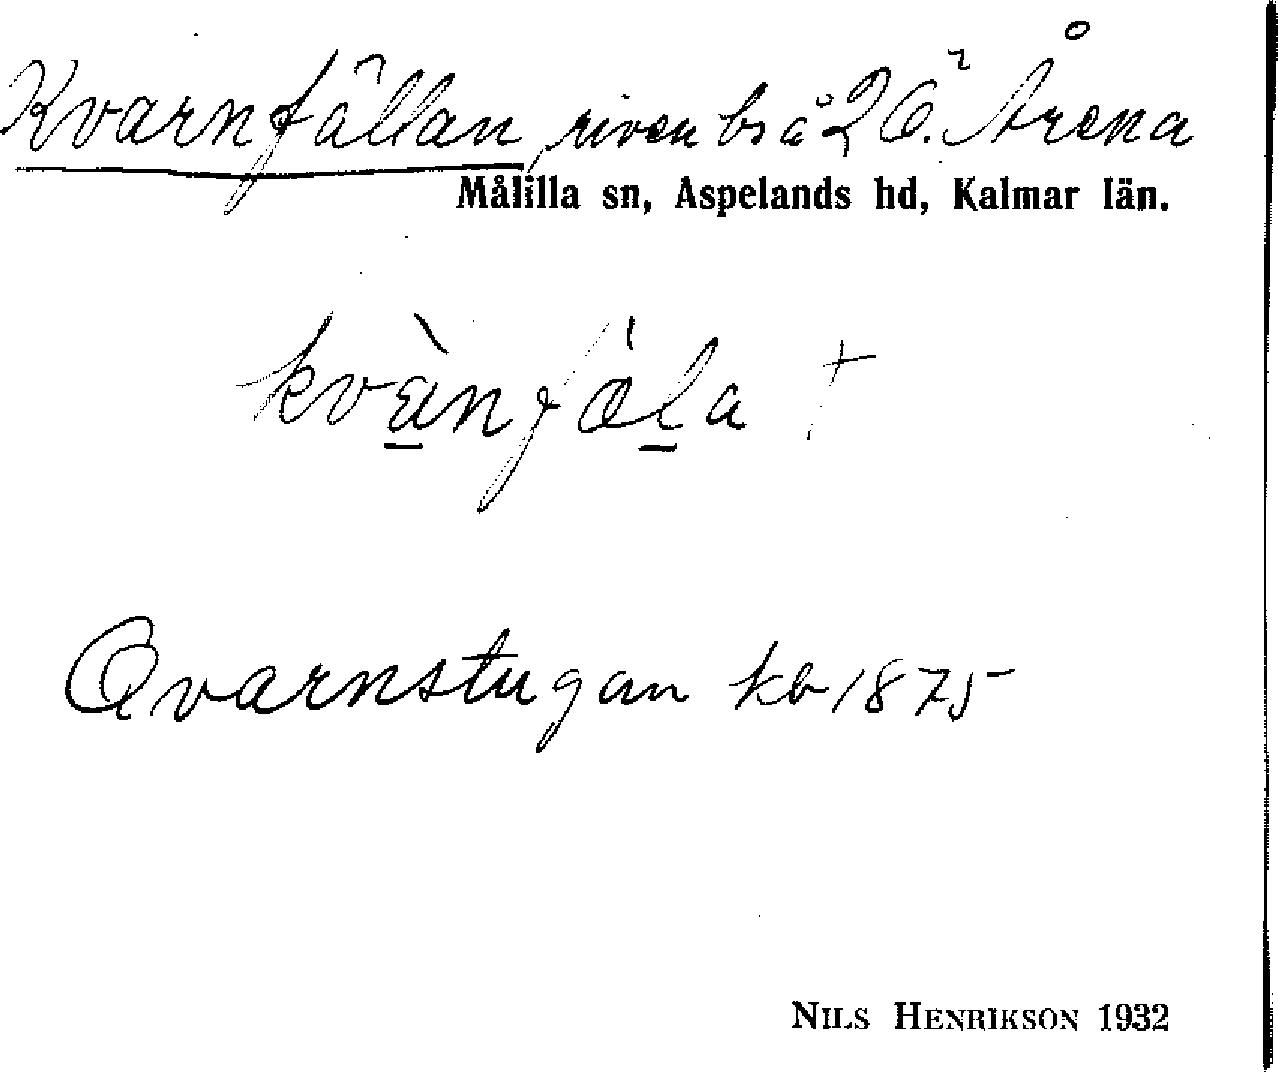 Kvarnfällan, riven bs å 26.² Årena
Målilla sn, Aspelands hd, Kalmar län.
kvànfäla †
Qvarnstugan kb 1875
NILS HENRIKSON 1932